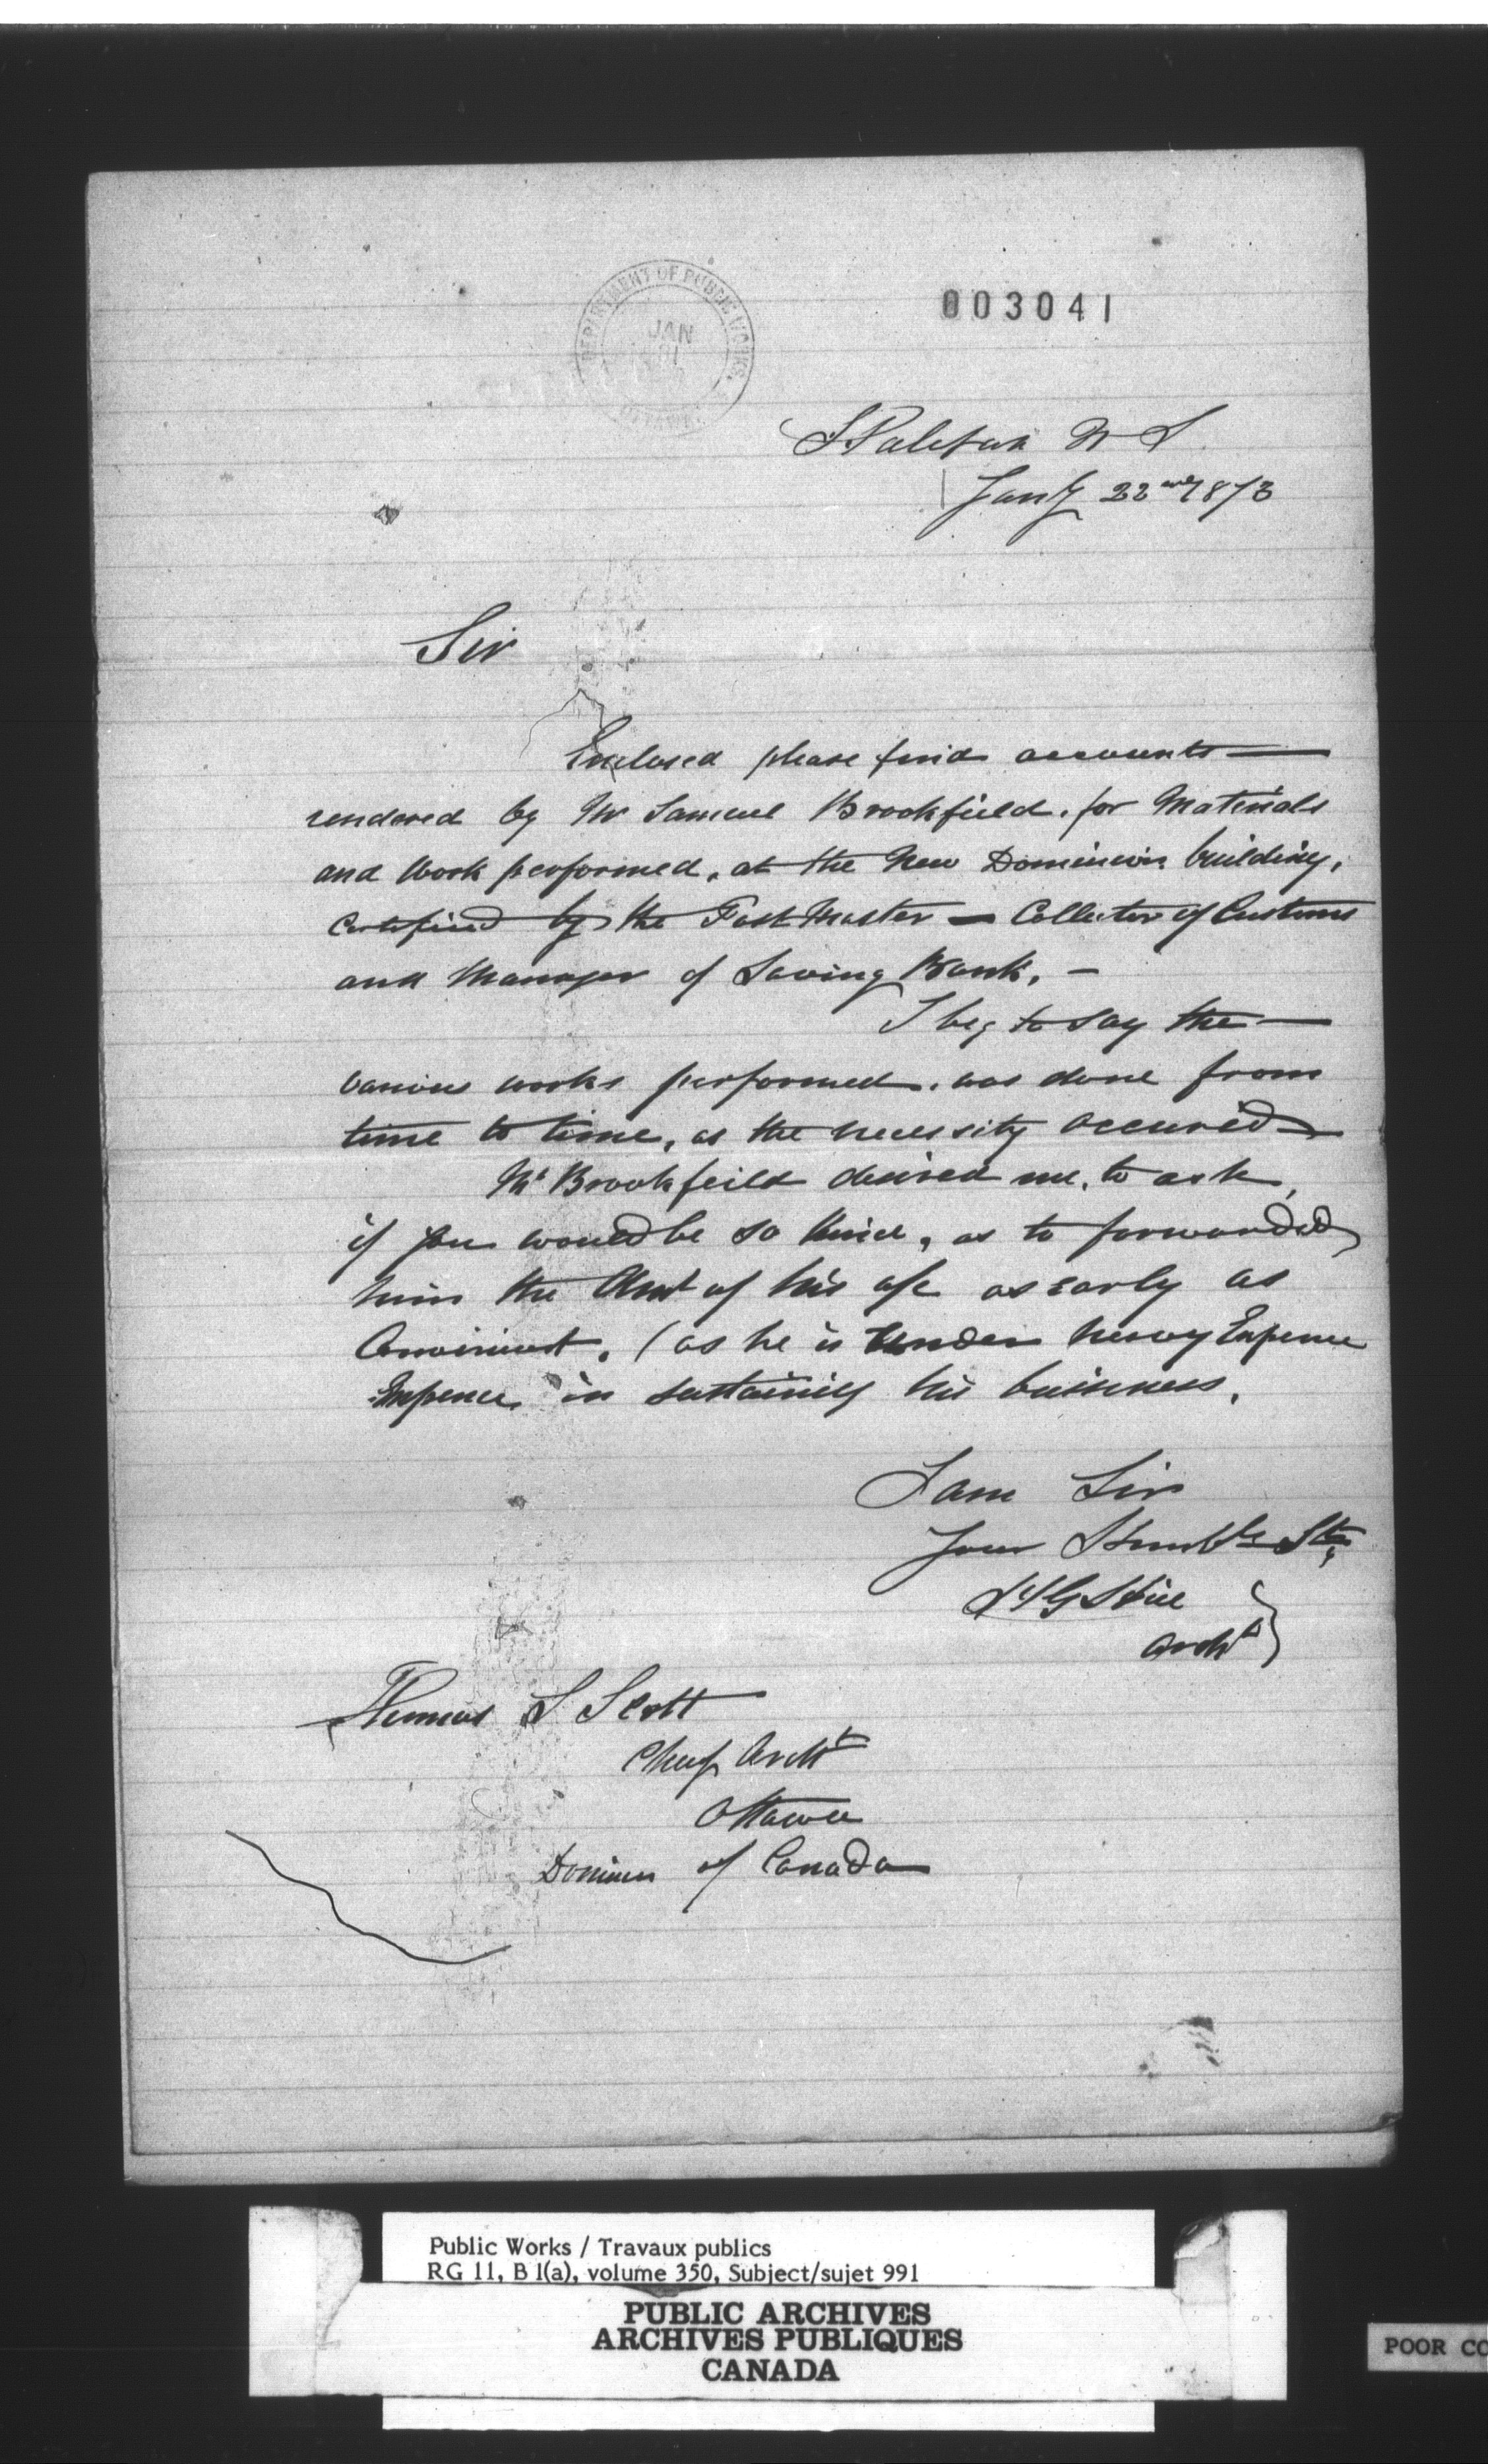 DEPARTMENT OF PUBLIC WORKS.
JAN
OTTAWA
003041
Halifax N S
Jany 22nd 1873
Sir
Enclosed please find accounts —
rendered by Mr Samuel Brookfield. for Materials
and Work performed, at the New Dominion building,
Certified by the Post Master — Collector of Customs
and Manager of Saving Bank. —
I beg to say the —
various works performed. was done from
time to time, as the necessity occured
Mr Brookfeild desired me, to ask,
if you would be so kind, as to forwarded
him the Amt of his a/c as early as
Convinient. (as he is under heavy Expence
Expence in sustaining his buisness.
I am Sir
Your Humble St,
Hill
Archt
Thomas S Scott
Cheif Archt
Ottawa
Dominion of Canada
Public Works / Travaux publics
RG 11, B 1(a), volume 350, Subject/sujet 991
PUBLIC ARCHIVES
ARCHIVES PUBLIQUES
CANADA
POOR CO